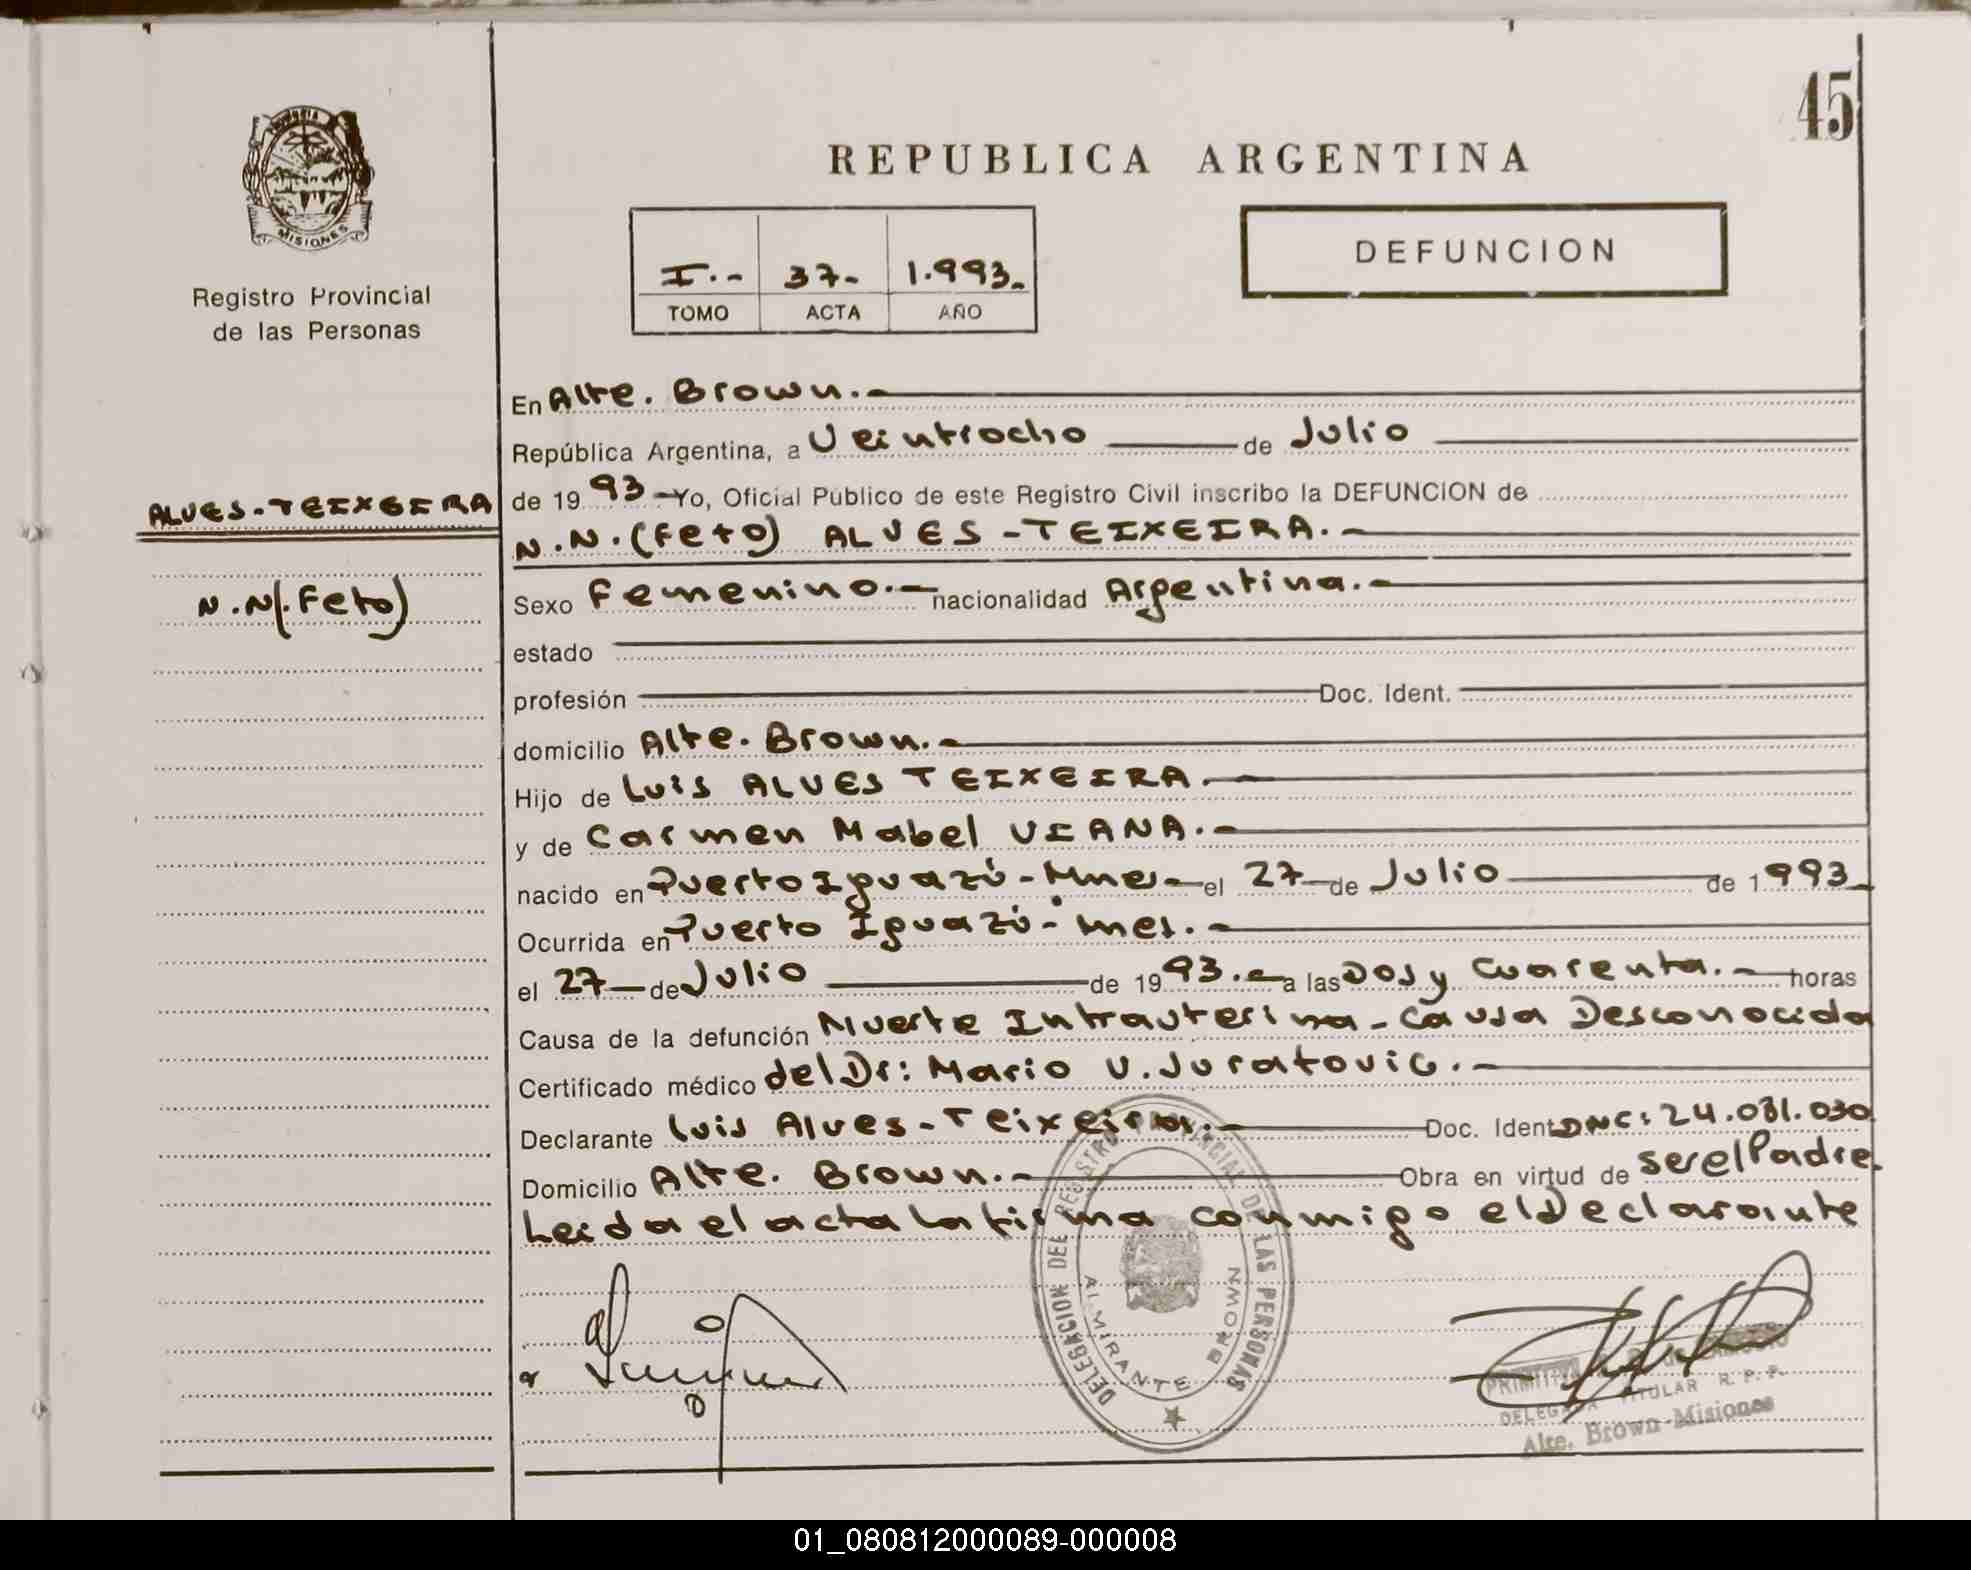 45
PROVINCIA
MISIONES
Registro Provincial
de las Personas
REPUBLICA ARGENTINA
I.- 37- 1.993.
TOMO ACTA AÑO
DEFUNCION
ALVES-TEIXEIRA
N.N(.Feto)
En Alte. Brown.-
República Argentina, a Veintiocho de Julio
de 1993 Yo, Oficial Público de este Registro Civil inscribo la DEFUNCION de
N.N.(Feto) ALVES-TEIXEIRA.-
Sexo Femenino.- nacionalidad Argentina.-
estado
profesión Doc. Ident.
domicilio Alte. Brown.-
Hijo de Luis ALVES TEIXEIRA.-
y de Carmen Mabel VIANA.-
nacido en Puerto Iguazú-Mnes- el 27 de Julio de 1993
Ocurrida en Puerto Iguazú-mes.-
el 27 de Julio de 1993.- a las Dos y Cuarenta.- horas
Causa de la defunción Muerte Intrauterina-Causa Desconocida
Certificado médico del Dr: Mario V. Juratovic.-
Declarante Luis Alves-Teixeira.- Doc. Ident DNC: 24.031.030
Domicilio Alte. Brown.- Obra en virtud de ser el Padre.
Leida el acta la firma conmigo el Declarante
DELEGACION DEL REGISTRO PROVINCIAL DE LAS PERSONAS
ALMIRANTE BROWN
DELEGADA TITULAR R. P. P.
Alte. Brown-Misiones
01_080812000089-000008